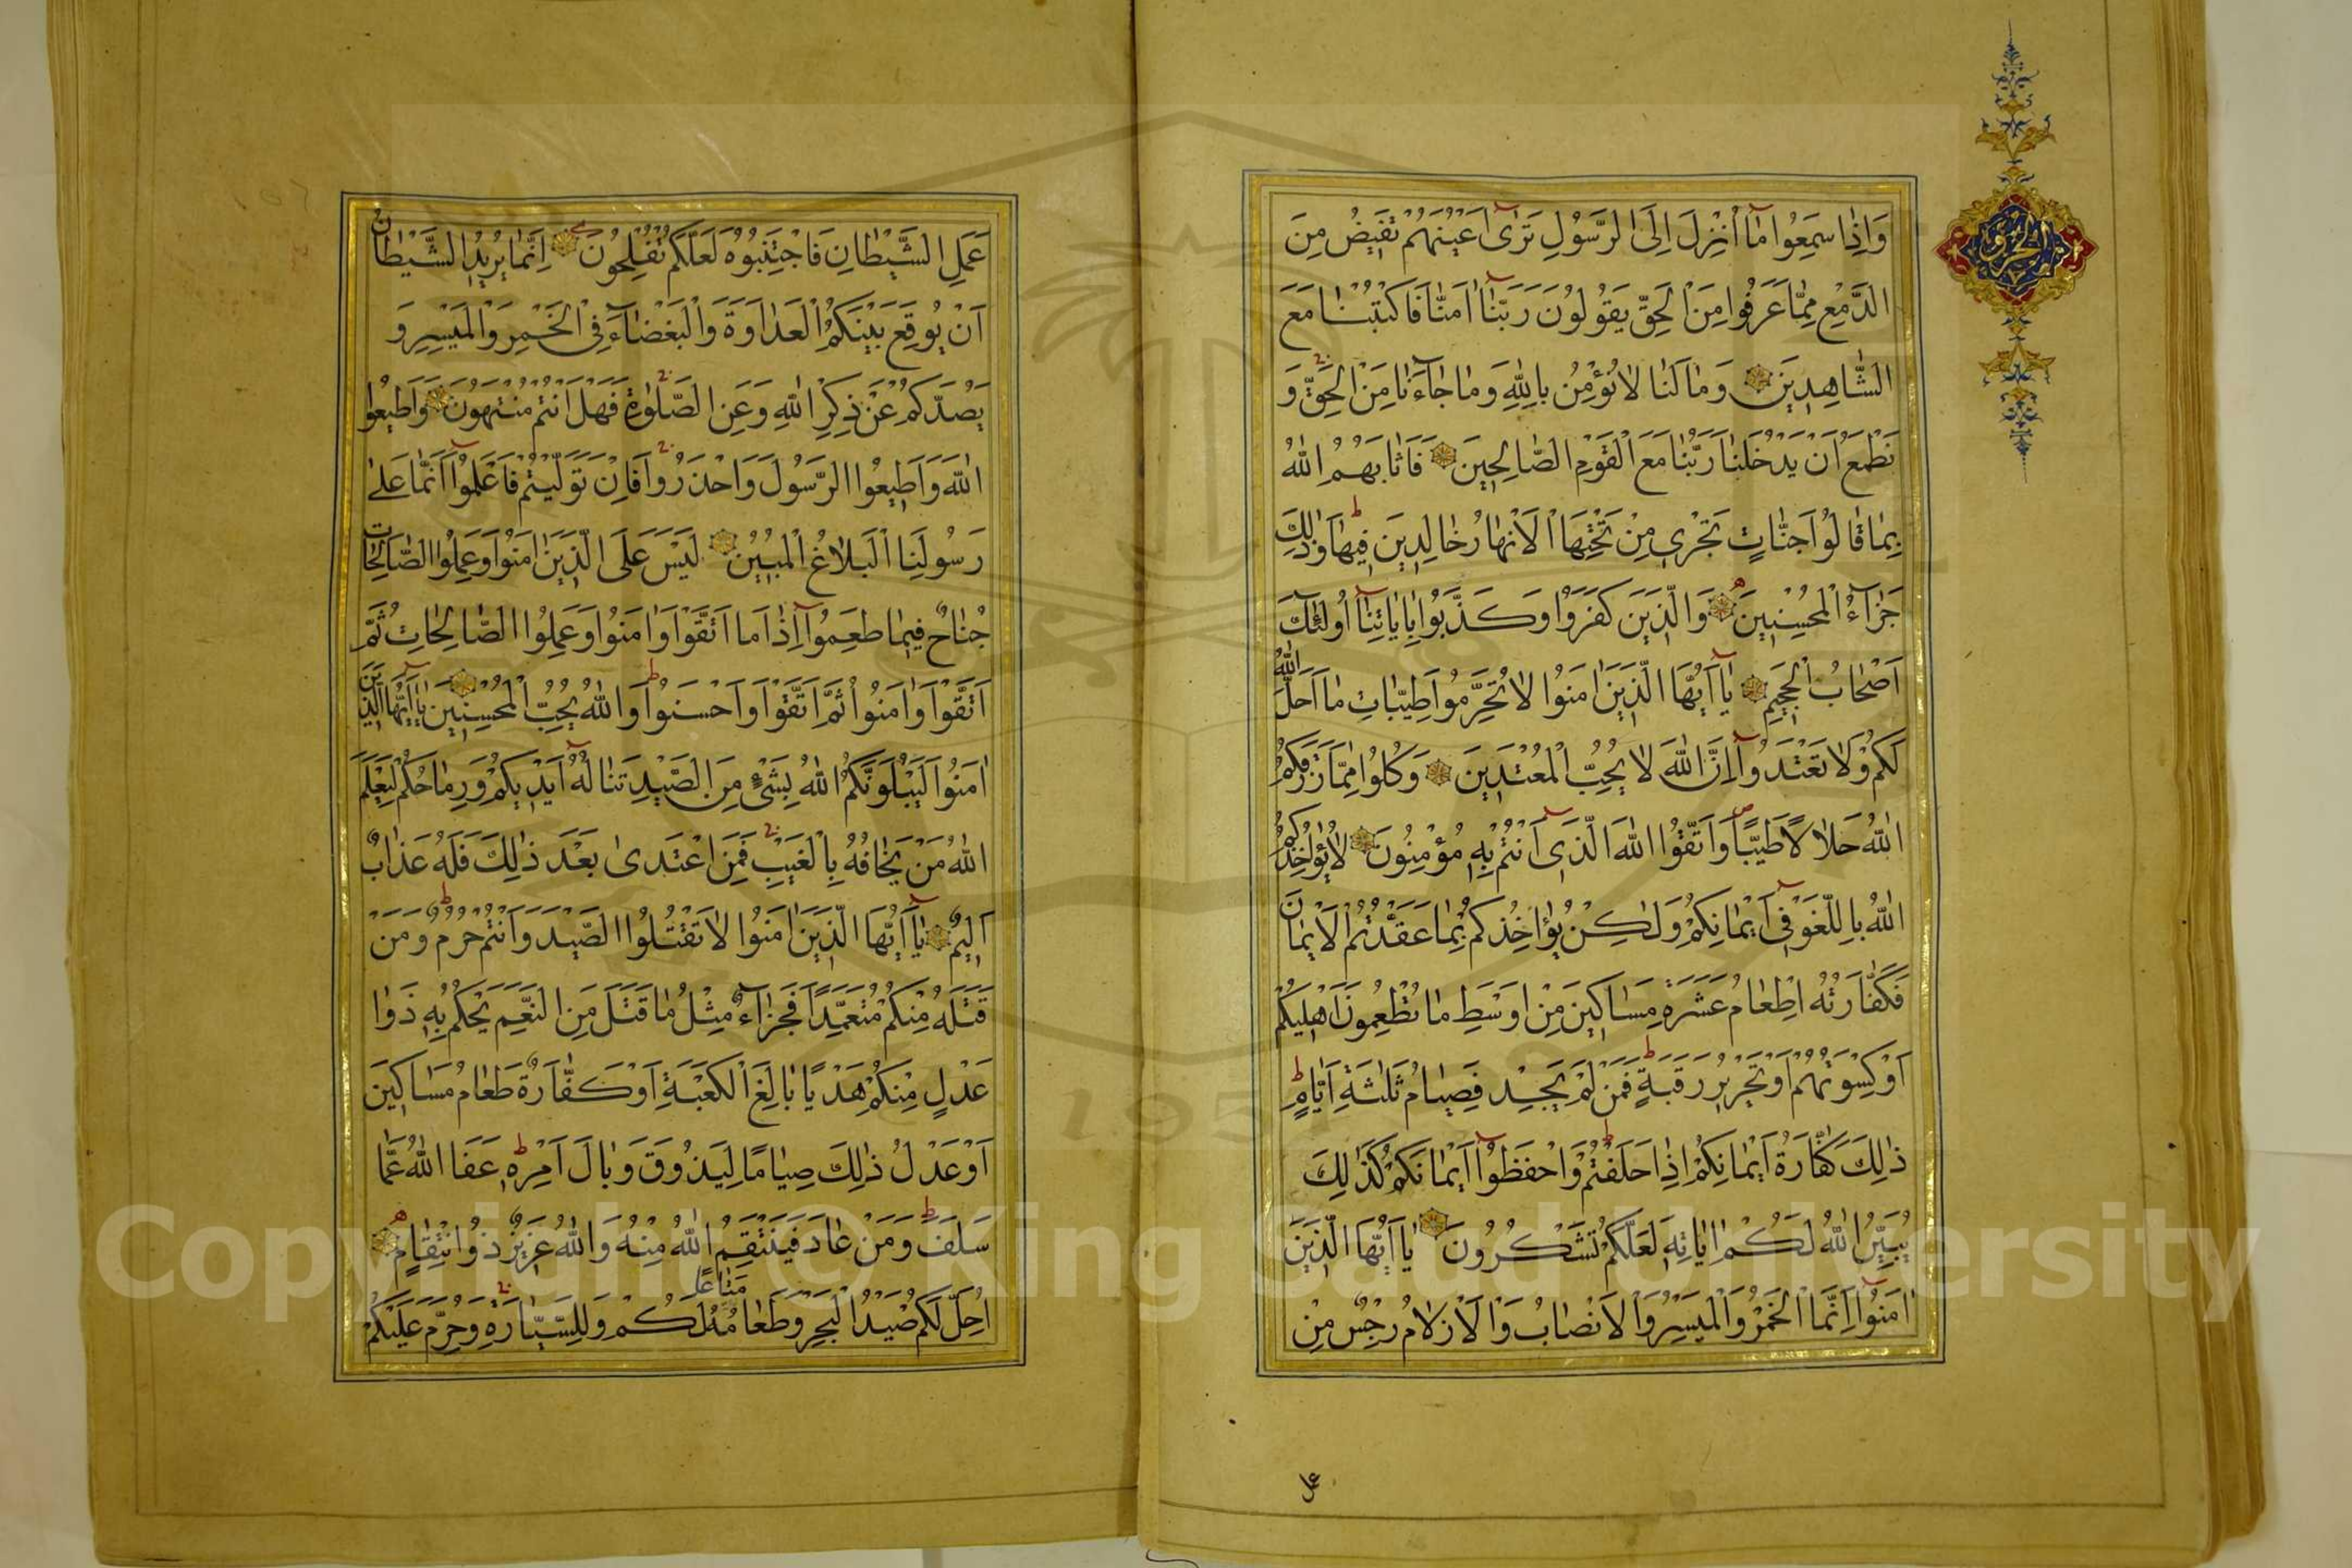 وَاِذَا سَمِعُوا مَآ اُنْزِلَ اِلَى الرَّسُولِ تَرٰٓى اَعْيُنَهُمْ تَفِيضُ مِنَ
الدَّمْعِ مِمَّا عَرَفُوا مِنَ الْحَقِّ يَقُولُونَ رَبَّنَآ اٰمَنَّا فَاكْتُبْنَا مَعَ
الشَّاهِدِينَ وَمَا لَنَا لَا نُؤْمِنُ بِاللهِ وَمَا جَآءَنَا مِنَ الْحَقِّ وَ
نَطْمَعُ اَنْ يَدْخُلَنَا رَبُّنَا مَعَ الْقَوْمِ الصَّالِحِينَ فَاَثَابَهُمُ اللهُ
بِمَا قَالُوا جَنَّاتٍ تَجْرِى مِنْ تَحْتِهَا الْاَنْهَارُ خَالِدِينَ فِيهَا وَذٰلِكَ
جَزَآءُ الْمُحْسِنِينَ وَالَّذِينَ كَفَرُوا وَكَذَّبُوا بِاٰيَاتِنَآ اُولٰٓئِكَ
اَصْحَابُ الْجَحِيمِ يَآ اَيُّهَا الَّذِينَ اٰمَنُوا لَا تُحَرِّمُوا طَيِّبَاتِ مَا اَحَلَّ اللهُ
لَكُمْ وَلَا تَعْتَدُوآ اِنَّ اللهَ لَا يُحِبُّ الْمُعْتَدِينَ وَكُلُوا مِمَّا رَزَقَكُمُ
اللهُ حَلَالًا طَيِّبًا وَاتَّقُوا اللهَ الَّذِىٓ اَنْتُمْ بِهِ مُؤْمِنُونَ لَا يُؤَاخِذُكُمُ
اللهُ بِاللَّغْوِ فِىٓ اَيْمَانِكُمْ وَلٰكِنْ يُؤَاخِذُكُمْ بِمَا عَقَّدْتُمُ الْاَيْمَانَ
فَكَفَّارَتُهُ اِطْعَامُ عَشَرَةِ مَسَاكِينَ مِنْ اَوْسَطِ مَا تُطْعِمُونَ اَهْلِيكُمْ
اَوْ كِسْوَتُهُمْ اَوْ تَحْرِيرُ رَقَبَةٍ فَمَنْ لَمْ يَجِدْ فَصِيَامُ ثَلٰثَةِ اَيَّامٍ
ذٰلِكَ كَفَّارَةُ اَيْمَانِكُمْ اِذَا حَلَفْتُمْ وَاحْفَظُوآ اَيْمَانَكُمْ كَذٰلِكَ
يُبَيِّنُ اللهُ لَكُمْ اٰيَاتِهِ لَعَلَّكُمْ تَشْكُرُونَ يَا اَيُّهَا الَّذِينَ
اٰمَنُوآ اِنَّمَا الْخَمْرُ وَالْمَيْسِرُ وَالْاَنْصَابُ وَالْاَزْلَامُ رِجْسٌ مِنْ
عمل
عَمَلِ الشَّيْطَانِ فَاجْتَنِبُوهُ لَعَلَّكُمْ تُفْلِحُونَ اِنَّمَا يُرِيدُ الشَّيْطَانُ
اَنْ يُوقِعَ بَيْنَكُمُ الْعَدَاوَةَ وَالْبَغْضَآءَ فِى الْخَمْرِ وَالْمَيْسِرِ وَ
يَصُدَّكُمْ عَنْ ذِكْرِ اللهِ وَعَنِ الصَّلٰوةِ فَهَلْ اَنْتُمْ مُنْتَهُونَ وَاَطِيعُوا
اللهَ وَاَطِيعُوا الرَّسُولَ وَاحْذَرُوا فَاِنْ تَوَلَّيْتُمْ فَاعْلَمُوآ اَنَّمَا عَلٰى
رَسُولِنَا الْبَلَاغُ الْمُبِينُ لَيْسَ عَلَى الَّذِينَ اٰمَنُوا وَعَمِلُوا الصَّالِحَاتِ
جُنَاحٌ فِيمَا طَعِمُوآ اِذَا مَا اتَّقَوْا وَاٰمَنُوا وَعَمِلُوا الصَّالِحَاتِ ثُمَّ
اتَّقَوْا وَاٰمَنُوا ثُمَّ اتَّقَوْا وَاَحْسَنُوا وَاللهُ يُحِبُّ الْمُحْسِنِينَ يَآ اَيُّهَا الَّذِينَ
اٰمَنُوا لَيَبْلُوَنَّكُمُ اللهُ بِشَىْءٍ مِنَ الصَّيْدِ تَنَالُهُٓ اَيْدِيكُمْ وَرِمَاحُكُمْ لِيَعْلَمَ
اللهُ مَنْ يَخَافُهُ بِالْغَيْبِ فَمَنِ اعْتَدٰى بَعْدَ ذٰلِكَ فَلَهُ عَذَابٌ
اَلِيمٌ يَآ اَيُّهَا الَّذِينَ اٰمَنُوا لَا تَقْتُلُوا الصَّيْدَ وَاَنْتُمْ حُرُمٌ وَمَنْ
قَتَلَهُ مِنْكُمْ مُتَعَمِّدًا فَجَزَآءٌ مِثْلُ مَا قَتَلَ مِنَ النَّعَمِ يَحْكُمُ بِهِ ذَوَا
عَدْلٍ مِنْكُمْ هَدْيًا بَالِغَ الْكَعْبَةِ اَوْ كَفَّارَةٌ طَعَامُ مَسَاكِينَ
اَوْ عَدْلُ ذٰلِكَ صِيَامًا لِيَذُوقَ وَبَالَ اَمْرِهِ عَفَا اللهُ عَمَّا
سَلَفَ وَمَنْ عَادَ فَيَنْتَقِمُ اللهُ مِنْهُ وَاللهُ عَزِيزٌ ذُو انْتِقَامٍ
اُحِلَّ لَكُمْ صَيْدُ الْبَحْرِ وَطَعَامُهُ مَتَاعًا لَكُمْ وَلِلسَّيَّارَةِ وَحُرِّمَ عَلَيْكُمْ
Copyright © King Saud University
1957